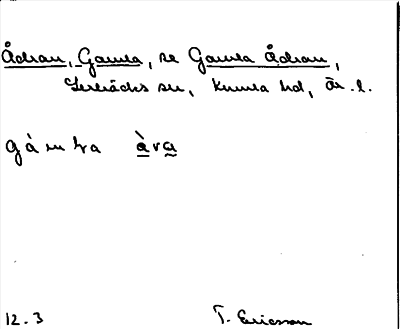 Ådran, Gamla, se Gamla Ådran,
Lerbäcks sn, Kumla hd, Är. l.
gàmḷa àra
12.3 T. Ericsson